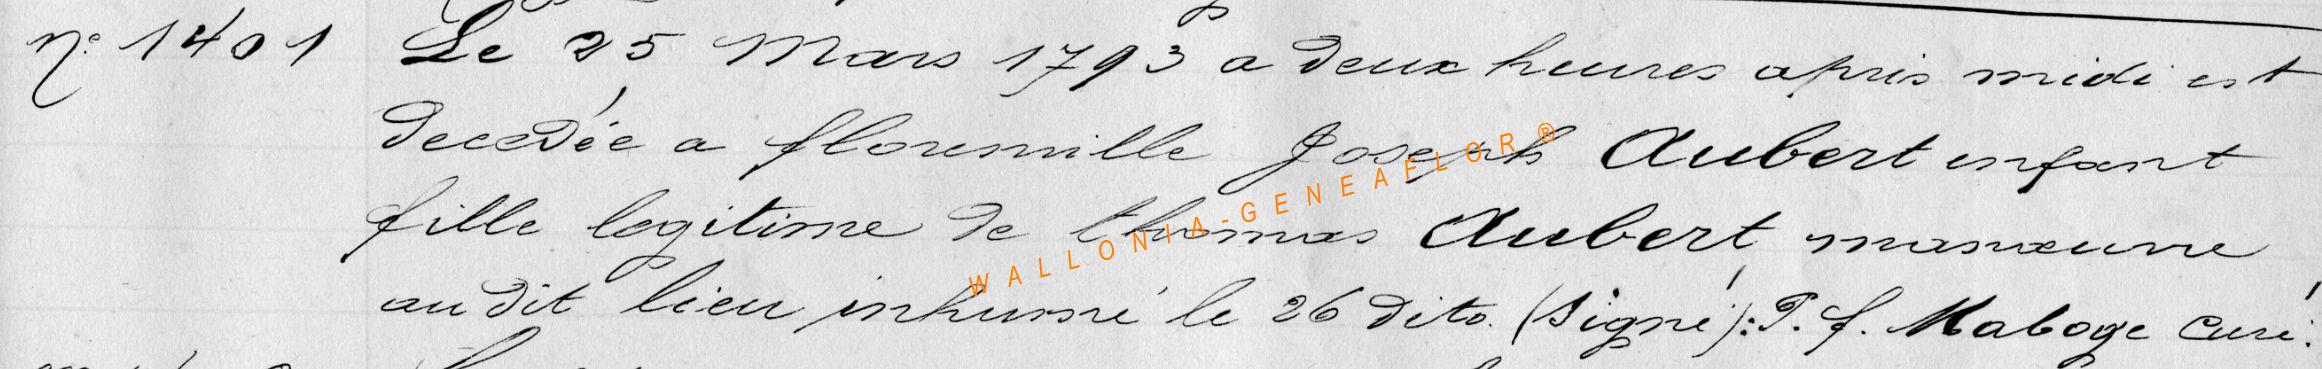 n° 1401 Le 25 Mars 1793 a deux heures apris midi est
decedée a florenville Joseph Aubert enfant
fille legitime de thomas Aubert manœuvre
au dit lieu inhumé le 26 dito. (Signé): P. f. Maboge Curé.
WALLONIA-GENEAFLOR ®